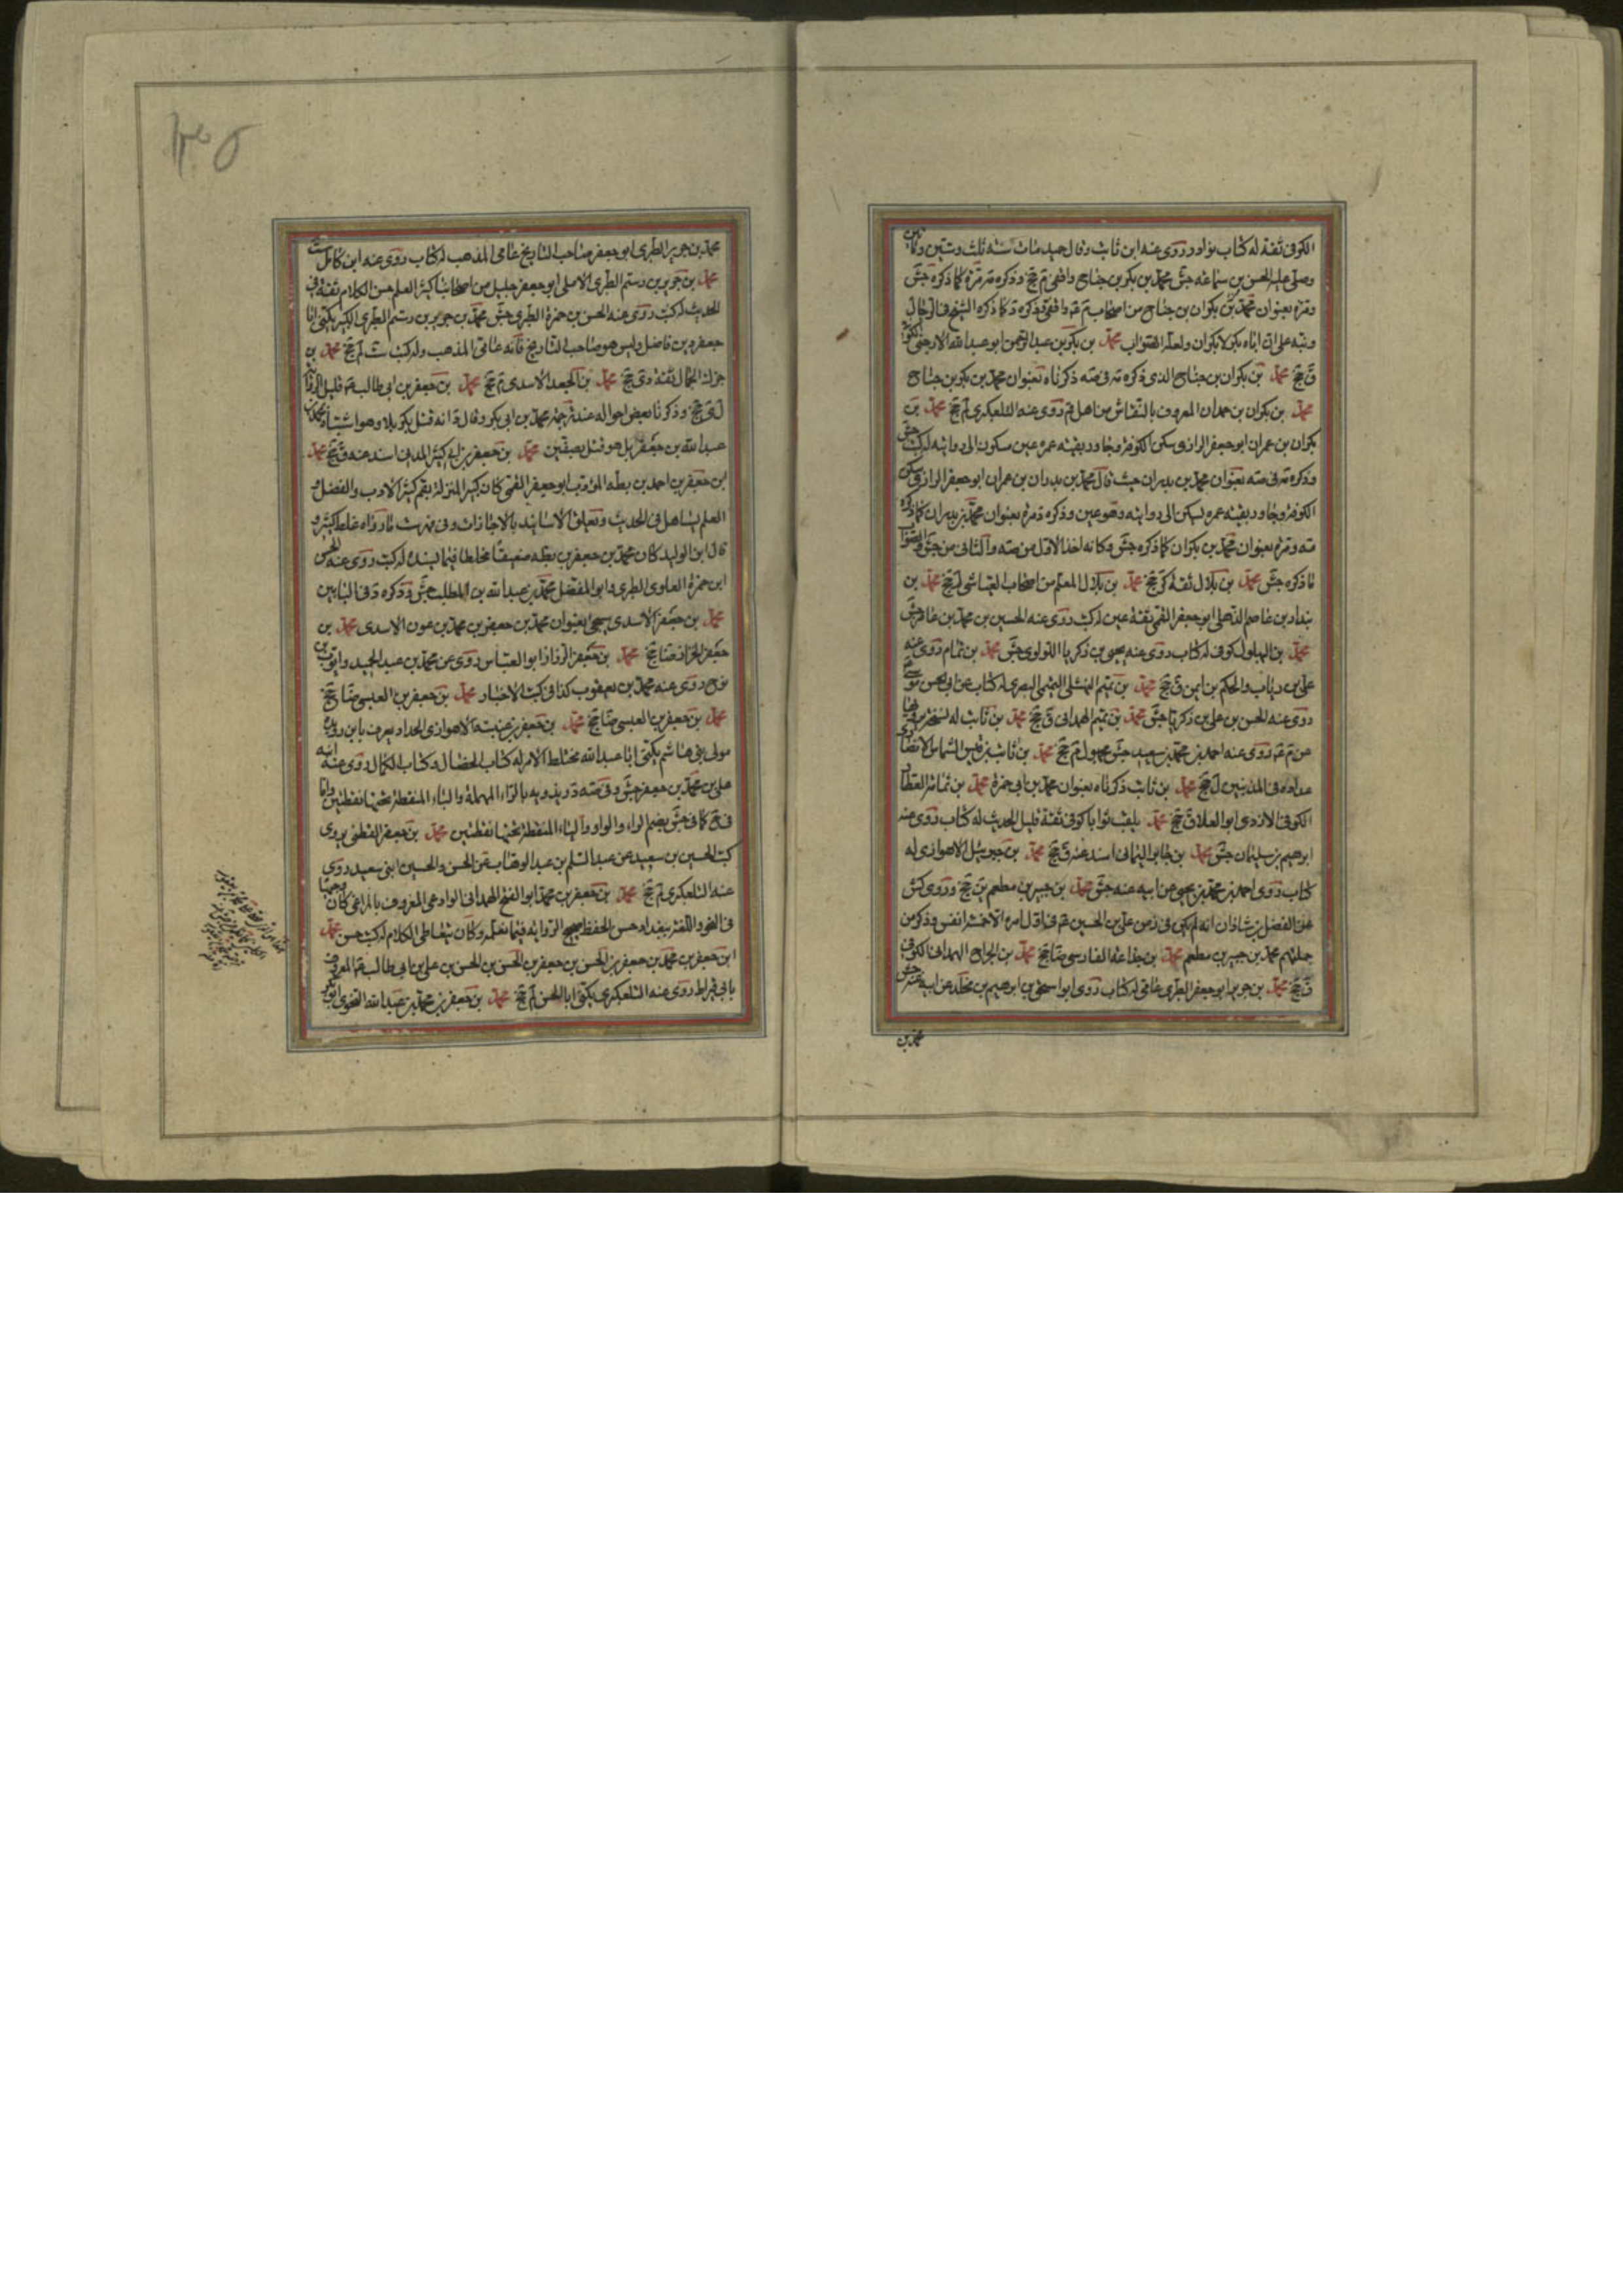 الكوفى ثقة له كتاب نوادر روى عنه ابن ثابت وقال حميد مات سنة ثلث وستين ومأتين
وصلى عليه الحسن بن سماعة جش محمد بن بكر بن جناح واقفى م جخ وذكره مرة كما ذكره جش
ومرة بعنوان محمد بن بكران بن جناح من اصحاب م واقفى وذكره د كما ذكره الشيخ فى الرجال
ونبه على ان اباه بكر لا بكران ولعله الصواب محمد بن بكر بن عبد الرحمن ابو عبد الله الارحبى الكوفى
ق جخ محمد بن بكران بن جناح الذى ذكره فى صه ذكرناه بعنوان محمد بن بكر بن جناح
محمد بن بكران بن حمدان المعروف بالنقاش من اهل قم روى عنه التلعكبرى لم جخ محمد بن
بكران بن عمران ابو جعفر الرازى سكن الكوفة وجاور بقية عمره عين مسكون الى روايته له كتب جش
وذكره فى صه بعنوان محمد بن بدران حيث قال محمد بن بدران بن عمران ابو جعفر الرازى سكن
الكوفة وجاور بقية عمره يسكن الى روايته وهو عين وذكره د مرة بعنوان محمد بن بدران كما ذكره
صه ومرة بعنوان محمد بن بكران كما ذكره جش وكانه اخذ الاول من صه والثانى من جش والصواب
ما ذكره جش محمد بن بلال ثقة كر جخ محمد بن بلال المعلم من اصحاب العياشى لم جخ محمد بن
بندار بن عاصم الذهلى ابو جعفر القمى ثقة عين له كتب روى عنه الحسين بن محمد بن عامر جش
محمد بن البهلول كوفى له كتاب روى عنه يحيى بن زكريا اللولوى جش محمد بن تمام روى عنه
على بن رئاب والحكم بن ايمن ق جخ محمد بن تميم النهشلى التميمى البصرى له كتاب عن ابى الحسن موسى
روى عنه الحسن بن على بن زكريا جش محمد بن تميم الهمدانى ق جخ محمد بن ثابت له نسخة يرويها
عن م روى عنه احمد بن محمد بن سعيد جش مجهول م جخ محمد بن ثابت بن قيس الشماس الانصارى
عداده فى المدنيين ل جخ محمد بن ثابت ذكرناه بعنوان محمد بن ابى حمزة محمد بن ثمامة العطار
الكوفى الازدى ابو العلا ق جخ محمد يلقب ثوابا كوفى ثقة قليل الحديث له كتاب روى عنه
ابرهيم بن سليمان جش محمد بن جابر اليمانى اسند عنه ق جخ محمد بن جبرئيل الاهوازى له
كتاب روى احمد بن محمد بن يحيى عن ابيه عنه جش محمد بن جبير بن مطعم ين جخ وروى كش
عن الفضل بن شاذان انه لم يكن فى زمن على بن الحسين فى اول امره الا خمسة انفس وذكر من
جملتهم محمد بن جبير بن مطعم محمد بن الفارسى ضا جخ محمد بن الجراح الهمدانى الكوفى
ق جخ محمد بن جرير ابو جعفر الطبرى عامى له كتاب روى ابو اسحق بن ابرهيم بن مخلد عن ابيه عنه جش
محمد بن
١٣٠٥
محمد بن جرير الطبرى ابو جعفر صاحب التاريخ عامى المذهب له كتاب روى عنه ابن كامل ست
محمد بن جرير بن رستم الطبرى الاملى ابو جعفر جليل من اصحابنا كبير العلم حسن الكلام ثقة فى
الحديث له كتب روى عنه الحسن بن حمزة الطبرى جش محمد بن جرير بن رستم الطبرى الكبير يكنى ابا
جعفر دين فاضل وليس هو صاحب التاريخ فانه عامى المذهب وله كتب ست لم جخ محمد بن
جزك الجمال ثقة دى جخ محمد بن الجعد الاسدى م جخ محمد بن جعفر بن ابى طالب قليل الرواية
ل ى جخ وذكرنا بعض احواله عند ترجمة محمد بن ابى بكر وقال د انه قتل بكربلا وهو اشتباه محمد بن
عبد الله بن جعفر بل هو قتل بصفين محمد بن جعفر بن ابى كثير المدنى اسند عنه ق جخ محمد
ابن جعفر بن احمد بن بطه المؤدب ابو جعفر القمى كان كبير المنزلة بقم كثير الادب والفضل و
العلم يتساهل فى الحديث ويعلق الاسانيد بالاجازات وفى فهرست ما رواه غلط كثير و
قال ابن الوليد كان محمد بن جعفر بن بطه ضعيفا مخلطا فيما يسنده له كتب روى عنه الحسن
ابن حمزة العلوى الطبرى وابو المفضل محمد بن عبد الله بن المطلب جش وذكره د فى البابين
محمد بن جعفر الاسدى يجيئ بعنوان محمد بن جعفر بن محمد بن عون الاسدى محمد بن
جعفر الخزاز ضا جخ محمد بن جعفر الرزاز ابو العباس روى عن محمد بن عبد الحميد وايوب بن
نوح روى عنه محمد بن يعقوب كذا فى كتب الاخبار محمد بن جعفر بن العبسى ضا جخ
محمد بن جعفر بن العبسى ضا جخ محمد بن جعفر بن عنبسة الاهوازى الحداد يعرف بابن رويده
مولى بنى هاشم يكنى ابا عبد الله مختلط الامر له كتاب الخصال وكتاب الكمال روى عنه ابنه
على بن محمد بن جعفر جش وفى صه د ريذويه بالراء المهملة والياء المنقطة تحتها نقطتين واما
فى ضح كما فى جش بضم الراء والواو والياء المنقطة تحتها نقطتين محمد بن جعفر القطنى يروى
كتب الحسين بن سعيد عن عبد السلم بن عبد الوهاب عن الحسن والحسين ابنى سعيد روى
عنه التلعكبرى لم جخ محمد بن جعفر بن محمد ابو الفتح الهمدانى الوادعى المعروف بالمراغى كان وجيها
فى النحو واللغة ببغداد حسن الحفظ صحيح الرواية فيما نعلمه وكان يتعاطى الكلام له كتب حسن محمد
ابن جعفر بن محمد بن جعفر بن الحسن بن جعفر بن الحسن بن الحسن بن على بن ابى طالب المعروف
بابى قيراط روى عنه التلعكبرى يكنى ابا الحسن لم جخ محمد بن جعفر بن محمد بن عبد الله النحوى ابو بكر